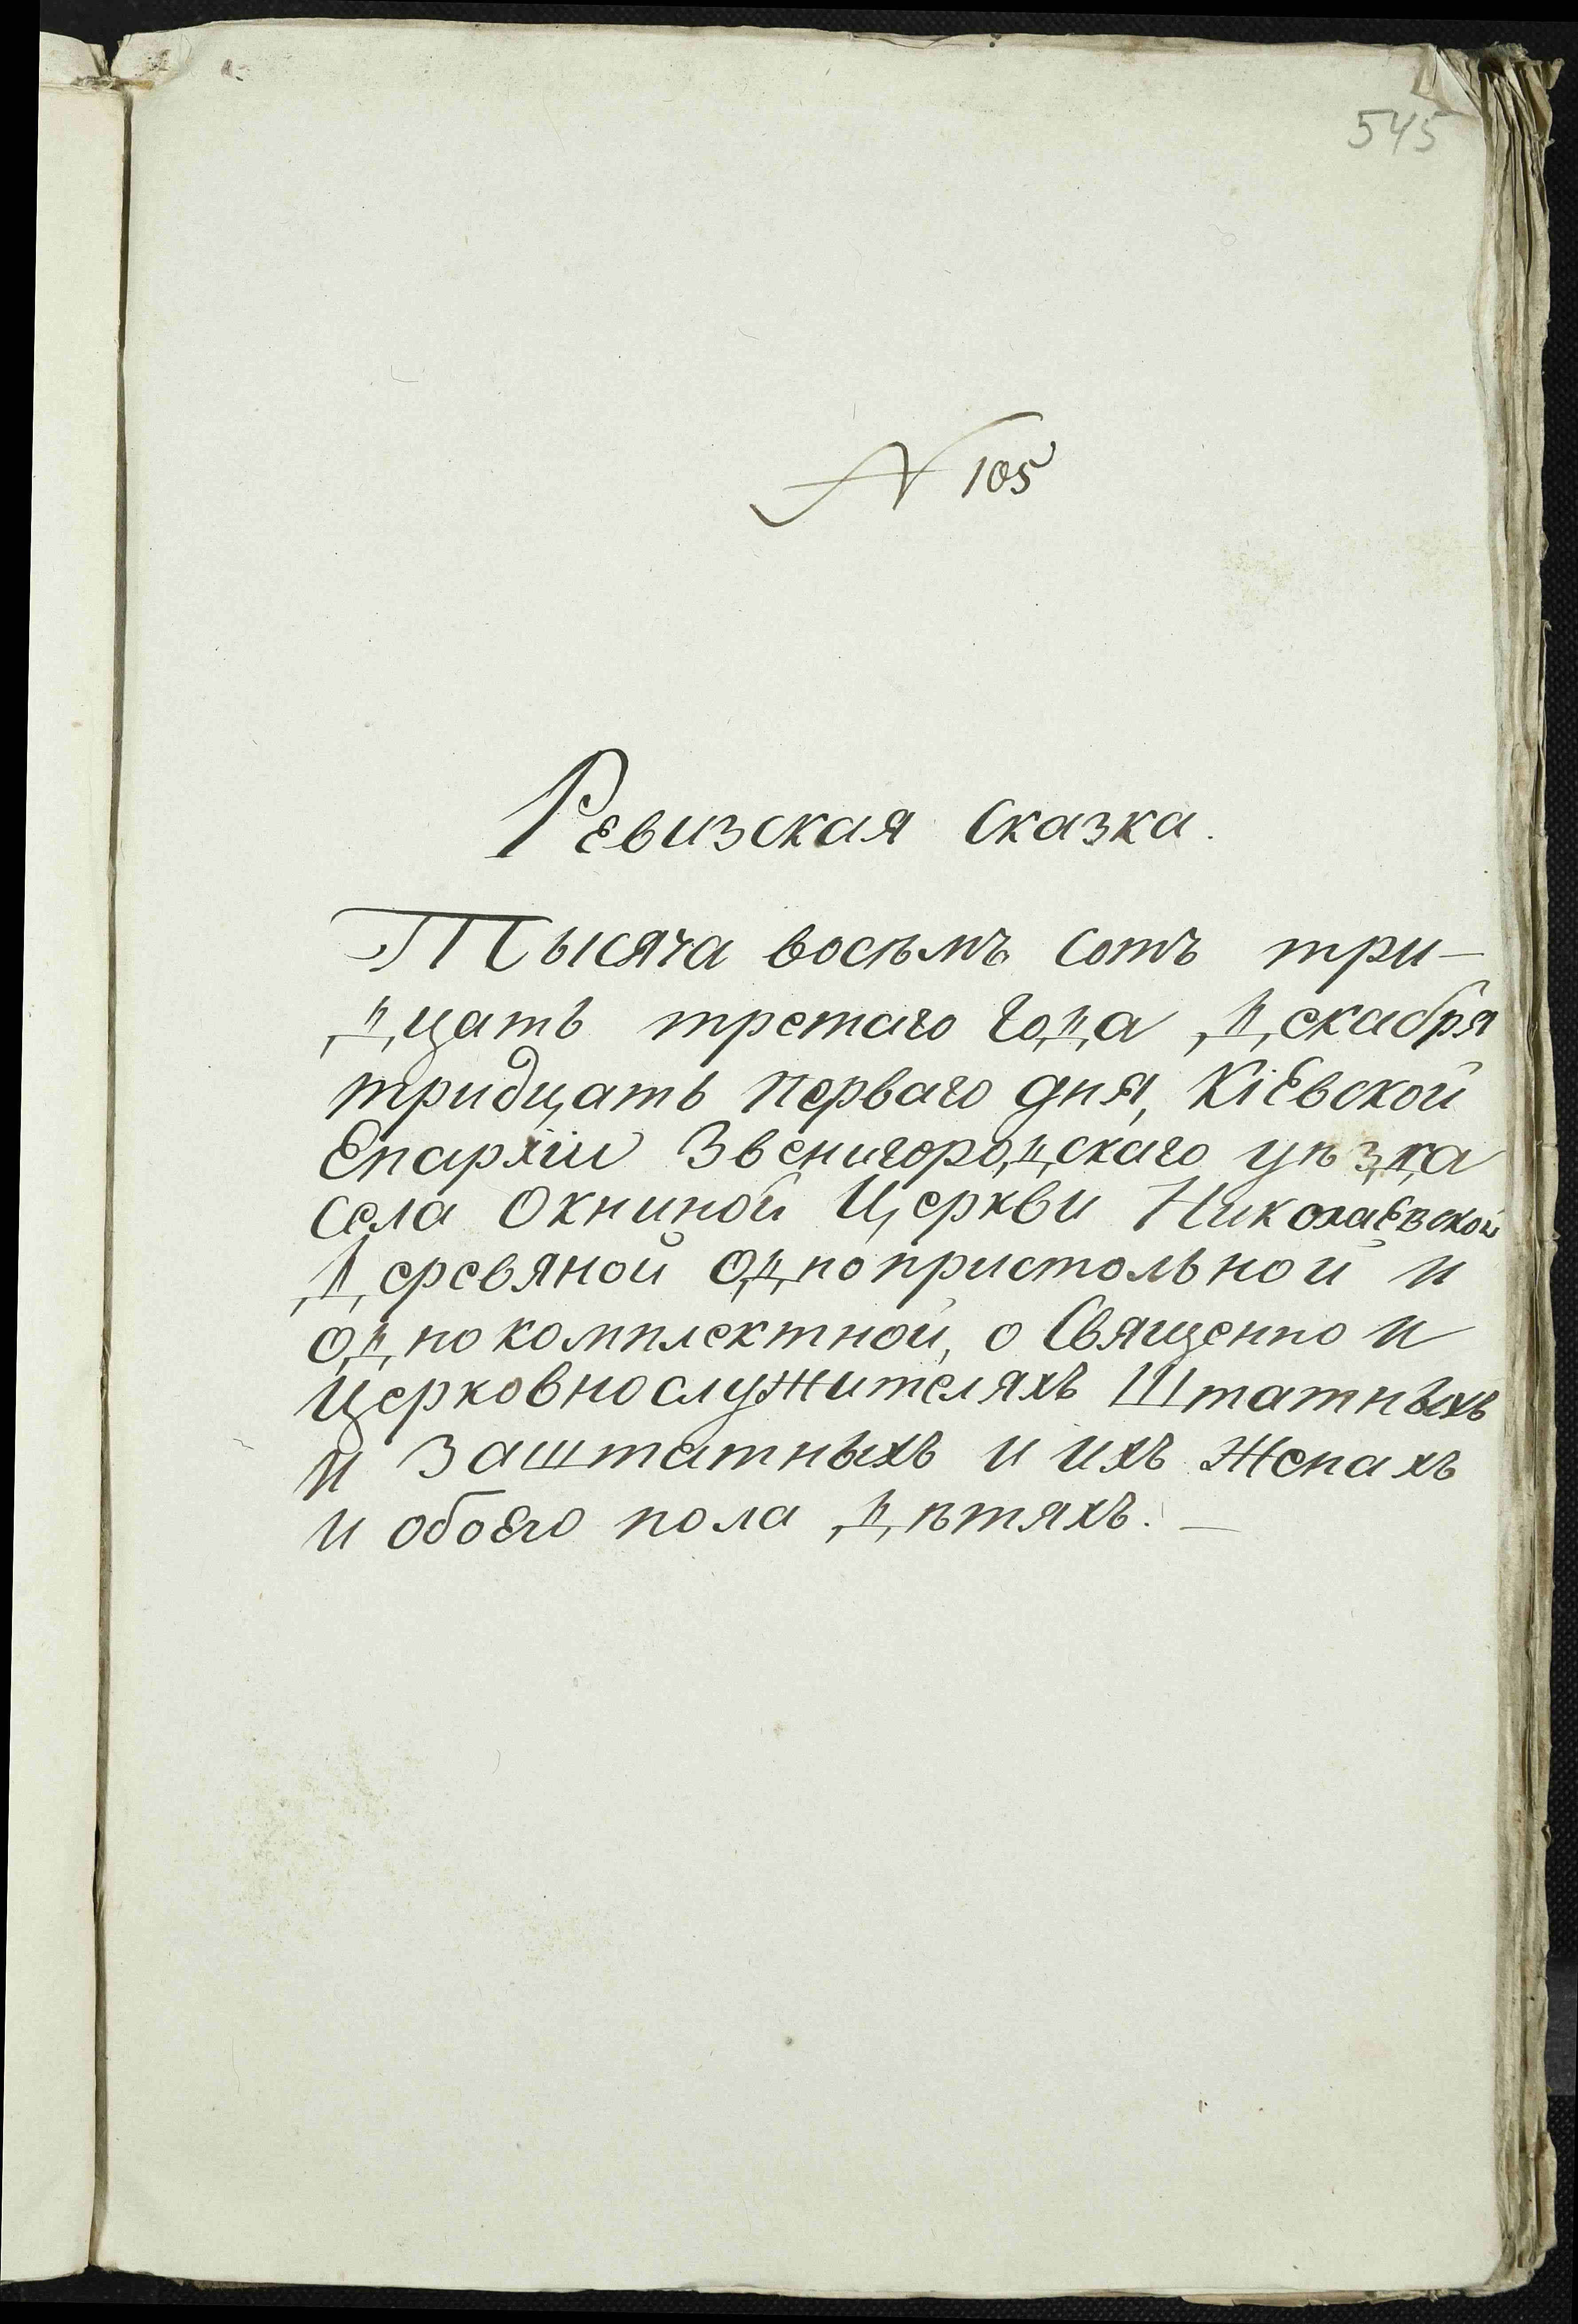 545
№ 105
Ревизская Сказка.
Тысяча восѣмъ Сотъ три-
дцать третаго Года Декабря
тридцать перваго дня, Кіевской
Епархіи Звенигородскаго уѣзда
Села Окниной Церкви Николаевской
Деревяной однопристольной и
однокомплектной, о Священно и
Церковнослужителяхъ Штатныхъ
и Заштатныхъ и ихъ Женахъ
и обоего пола дѣтяхъ. —